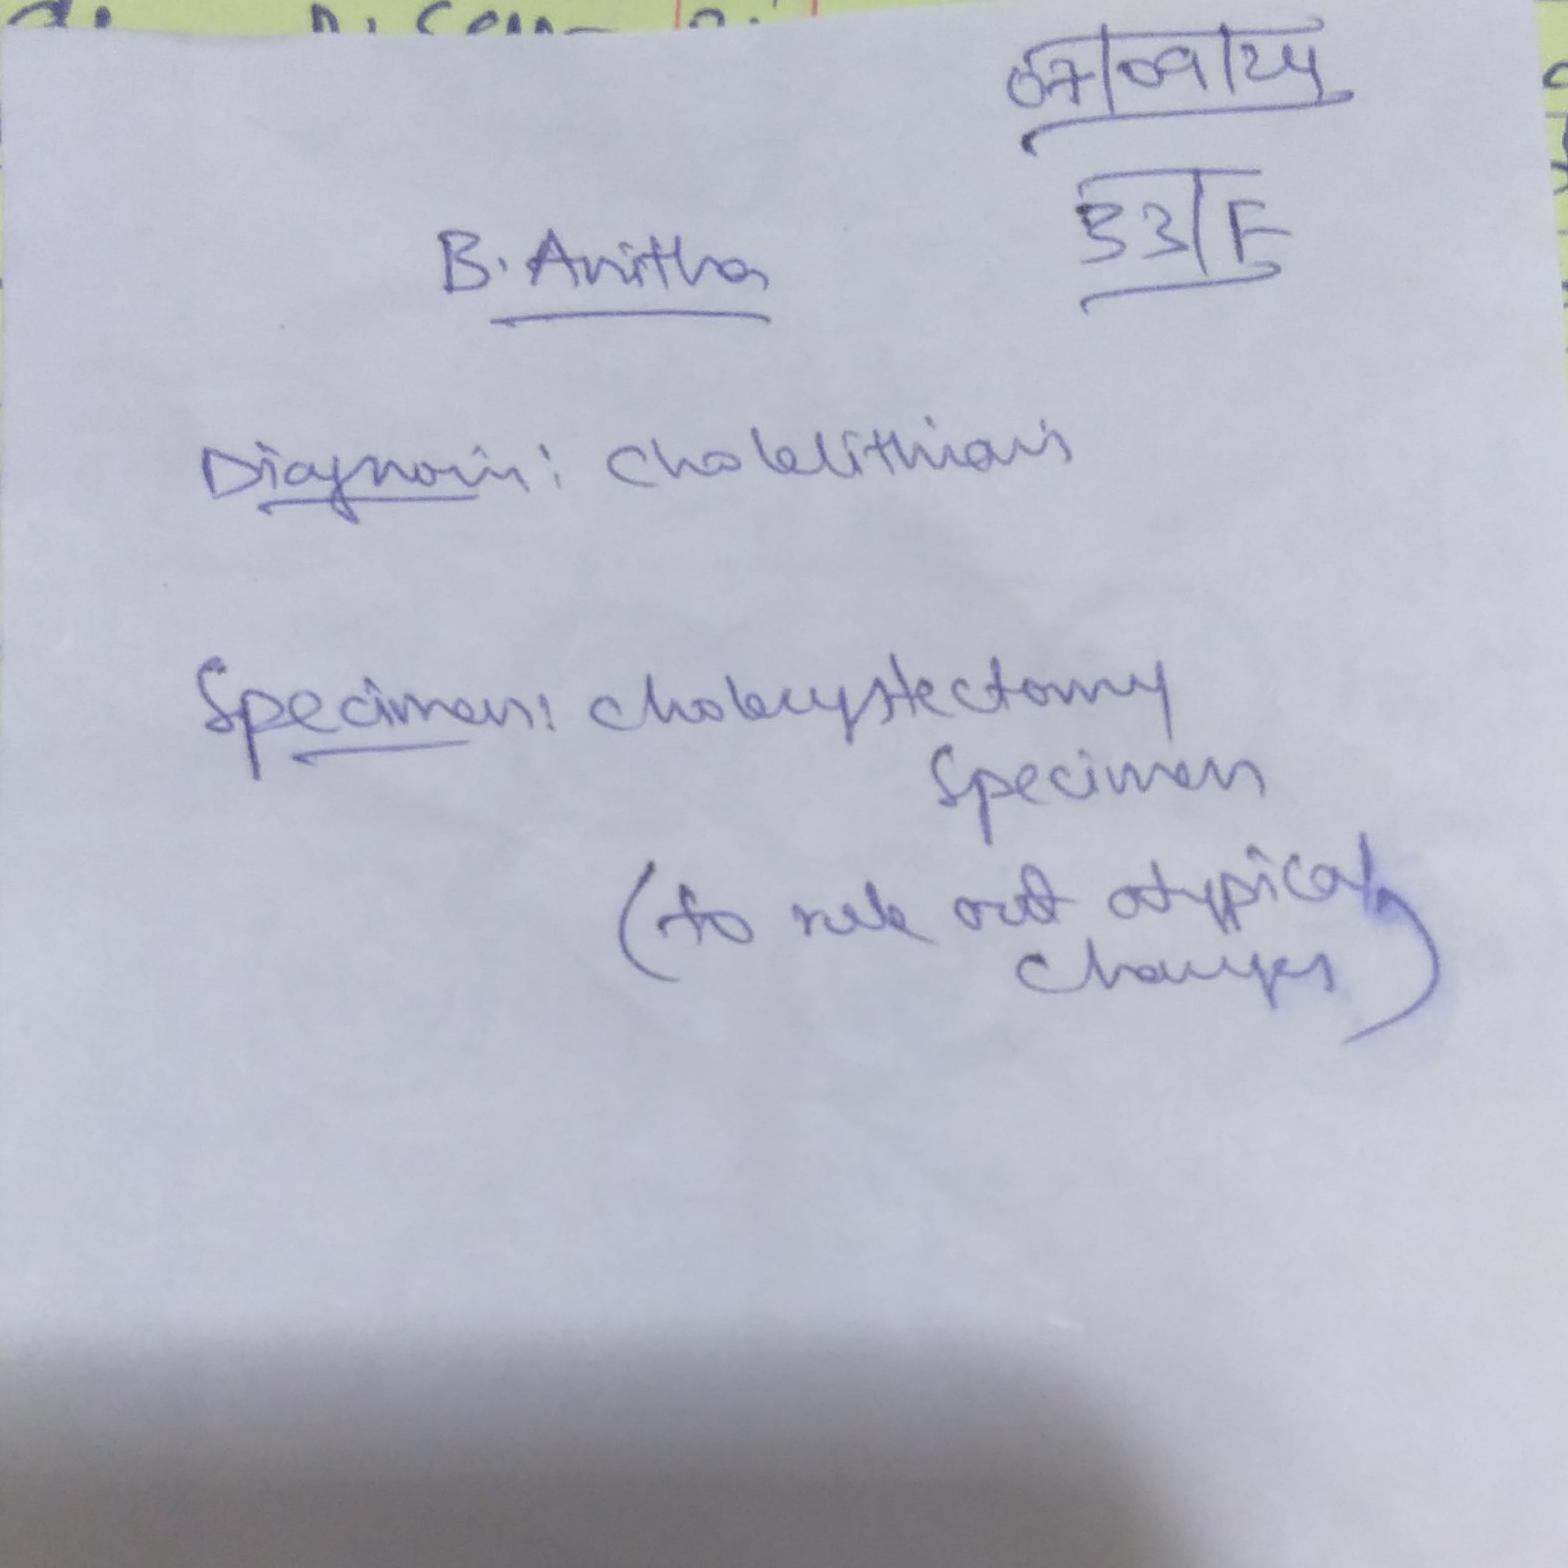 07/09/24
33/F
B. Anitha
Diagnosis: Cholelithiasis
Specimen: cholecystectomy
Specimen
(to rule out atypical
changes)